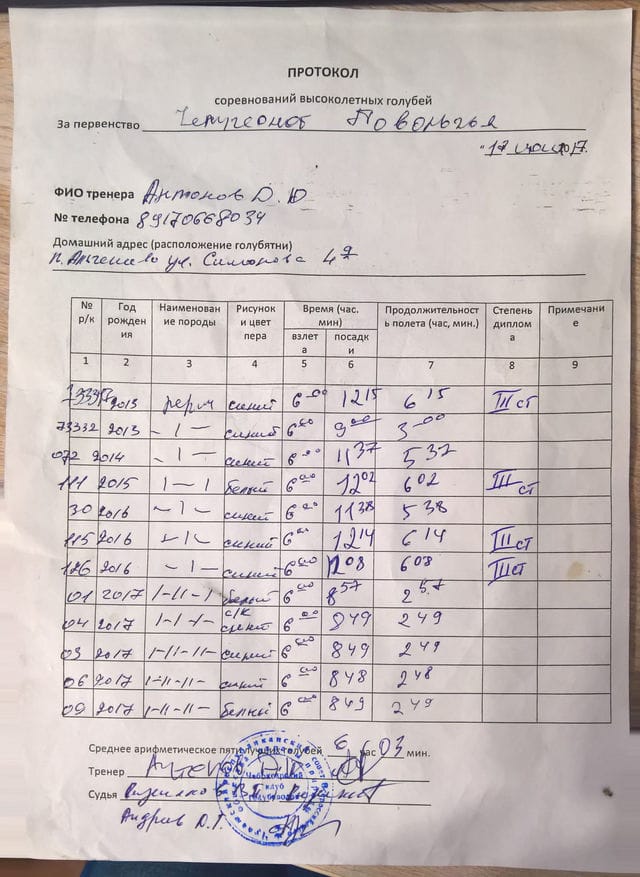 ПРОТОКОЛ
соревнований высоколетных голубей
За первенство Поволжья
ФИО тренера Антонов Д.Ю
№ телефона 89170668034
Домашний адрес (расположение голубятни)
ул. Симонова 4
№ р/к Год рождения Наименование породы Рисунок и цвет пера Время (час. мин) Продолжительность полета (час, мин.) Степень диплома Примечание
взлета посадки
1 2 3 4 5 6 7 8 9
2013 синий 6 00 12 15 6 15 III ст
73332 2013 - 1 - синий 6 00 9 00 3 - 00
072 2014 - 1 - синий 6 00 11 37 5 37
111 2015 1 - 1 белый 6 00 12 02 6 02 III ст
30 2016 - 1 - синий 6 00 11 38 5 38
115 2016 - 1 - синий 6 00 12 14 6 14 III ст
126 2016 - 1 - синий 6 00 12 08 6 08 III ст
01 2017 1 - 11 - 1 белый 6 00 8 57 2 57
04 2017 1 - 1 - 1 - с/к синий 6 00 8 49 2 49
03 2017 1 - 11 - 11 - синий 6 00 8 49 2 49
06 2017 1 - 11 - 11 - синий 6 00 8 48 2 48
09 2017 1 - 11 - 11 - белый 6 00 8 49 2 49
Среднее арифметическое пяти лучших голубей 6 час 03 мин.
Тренер
Судья
Чебоксарский
клуб